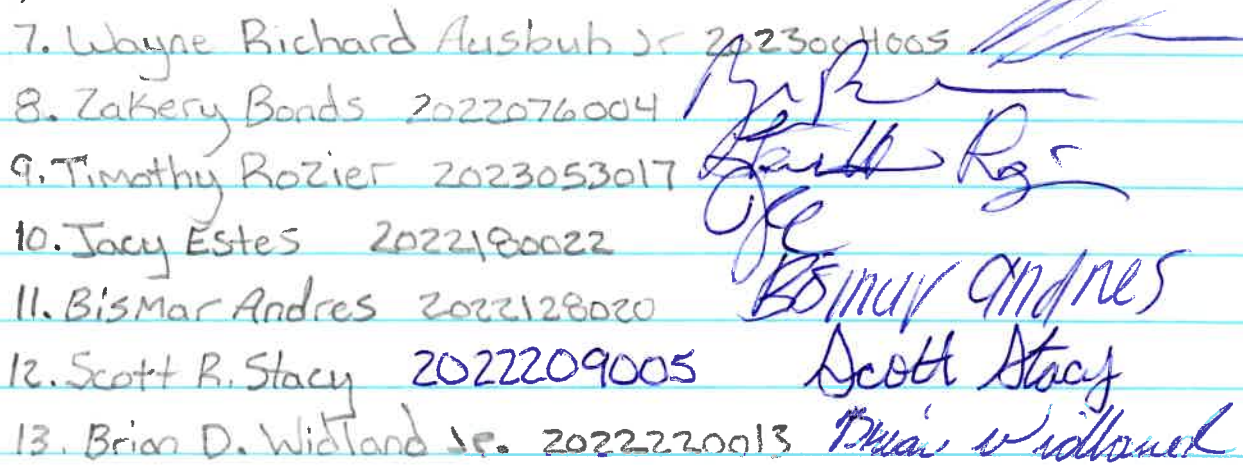 7. Wayne Richard Ausbuh Jr 2023004005
8. Zakery Bonds 2022076004
9. Timothy Rozier 2023053017
10. Jacy Estes 2022180022
11. Bismar Andres 2022128020 Bismar Andres
12. Scott R. Stacy 2022209005 Scott Stacy
13. Brian D. Widland Jr. 2022220013 Brian Widland